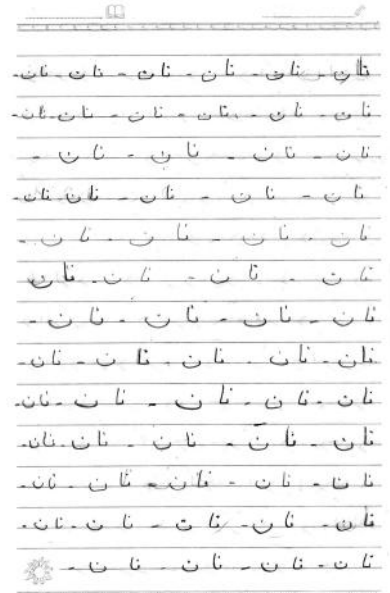 نان - نان - نان - نان - نان - نان -
نان - نان - نان - نان - نان - نان -
نان - نان - نان - نان -
نان - نان - نان - نان - نان -
نان - نان - نان - نان -
نان - نان - نان - نان
نان - نان - نان - نان -
نان - نان - نان - نان - نان -
نان - نان - نان - نان - نان -
نان - نان - نان - نان - نان -
نان - نان - نان - نان - نان -
نان - نان - نان - نان - نان -
نان - نان - نان - نان -